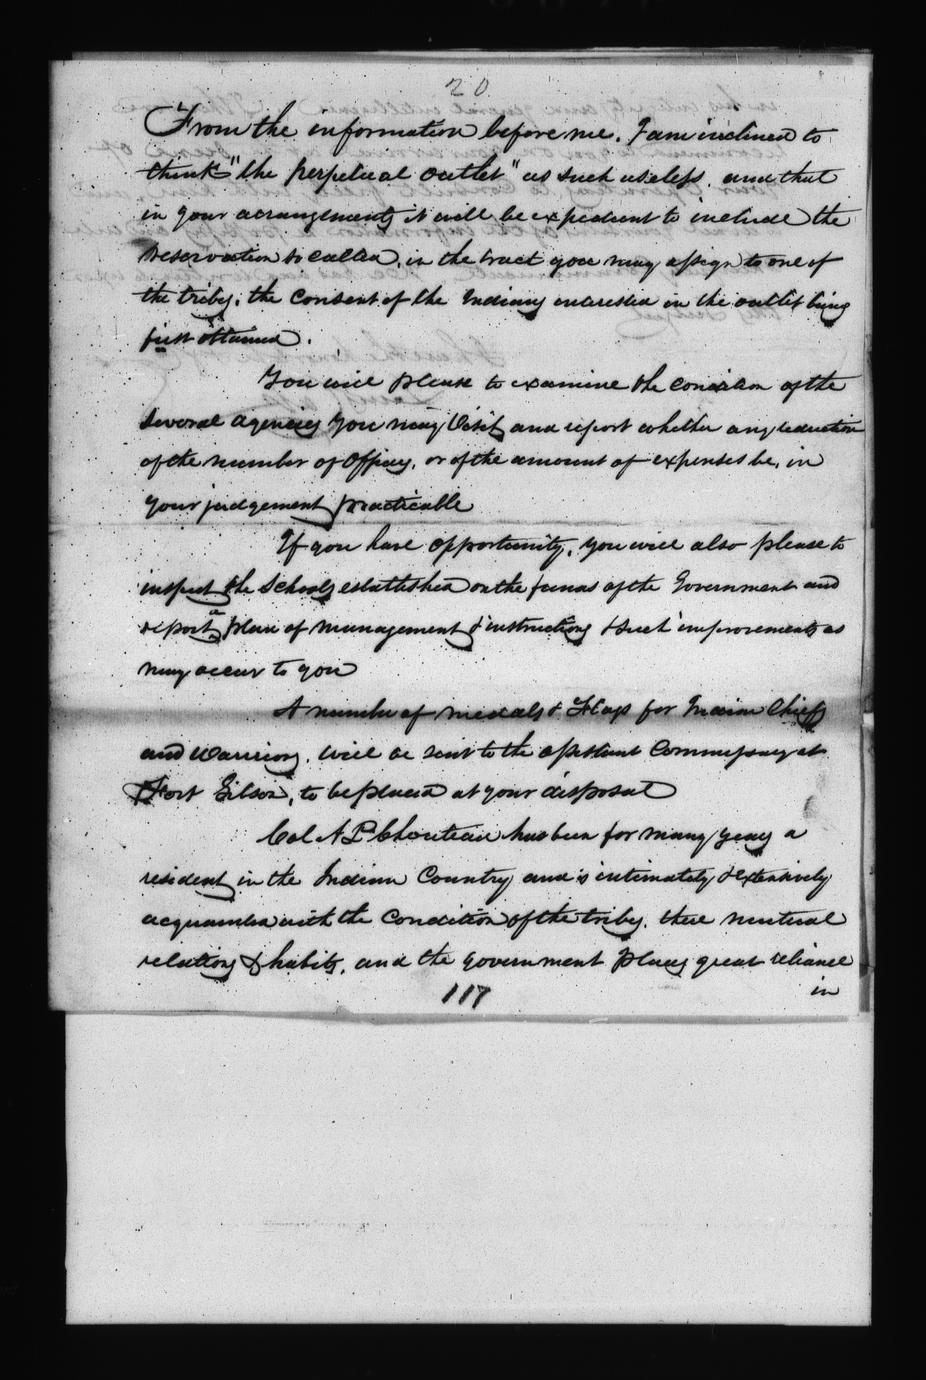 20
From the information before me, I am inclined to
think "the perpetual outlet" as such useless, and that
in your arrangements it will be expedient to include the
reservation so called, in the tract you may assign to one of
the tribes, the consent of the Indians interested in the outlet being
first obtained.
You will please to examine the condition of the
several agencies you may visit, and report whether any reduction
of the number of officers, or of the amount of expenses be, in
your judgement practicable
If you have opportunity, you will also please to
inspect the Schools established on the funds of the Government and
report a plan of management & instructions & such improvements as
may occur to you
A number of medals & Flags for Indian Chiefs
and warriors, will be sent to the assistant Commissary at
Fort Gibson, to be placed at your disposal
Col A P Chouteau has been for many years a
resident in the Indian Country and is intimately & extensively
acquainted with the Condition of the tribes, their mutual
relations & habits, and the government places great reliance
in
117